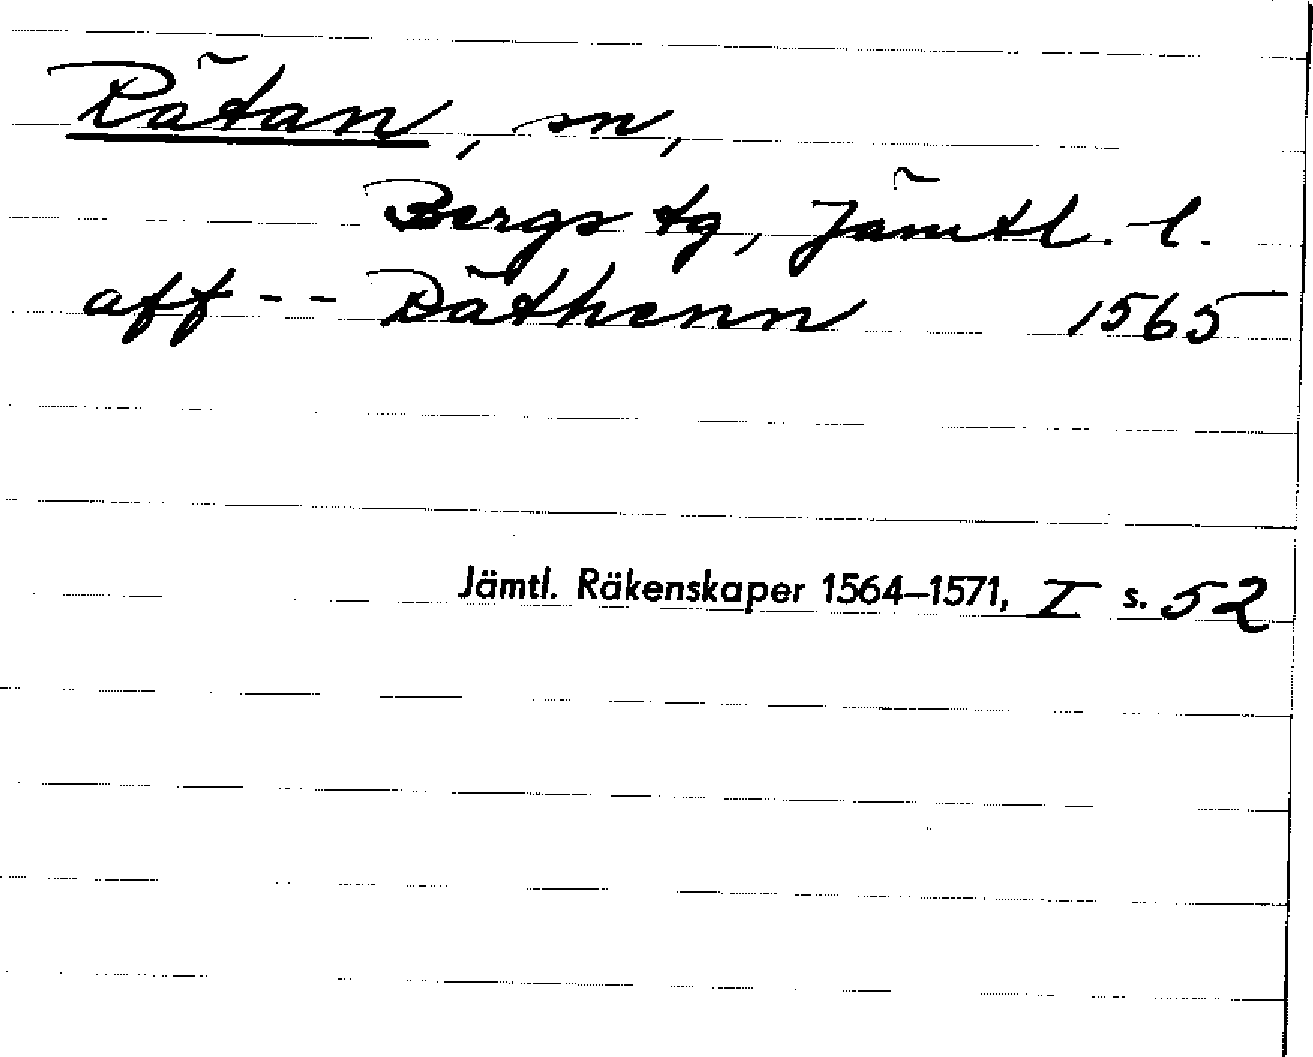 Rätan, sn,
Bergs tg, Jämtl. l.
aff -- Räthenn 1565
Jämtl. Räkenskaper 1564–1571, I s. 52